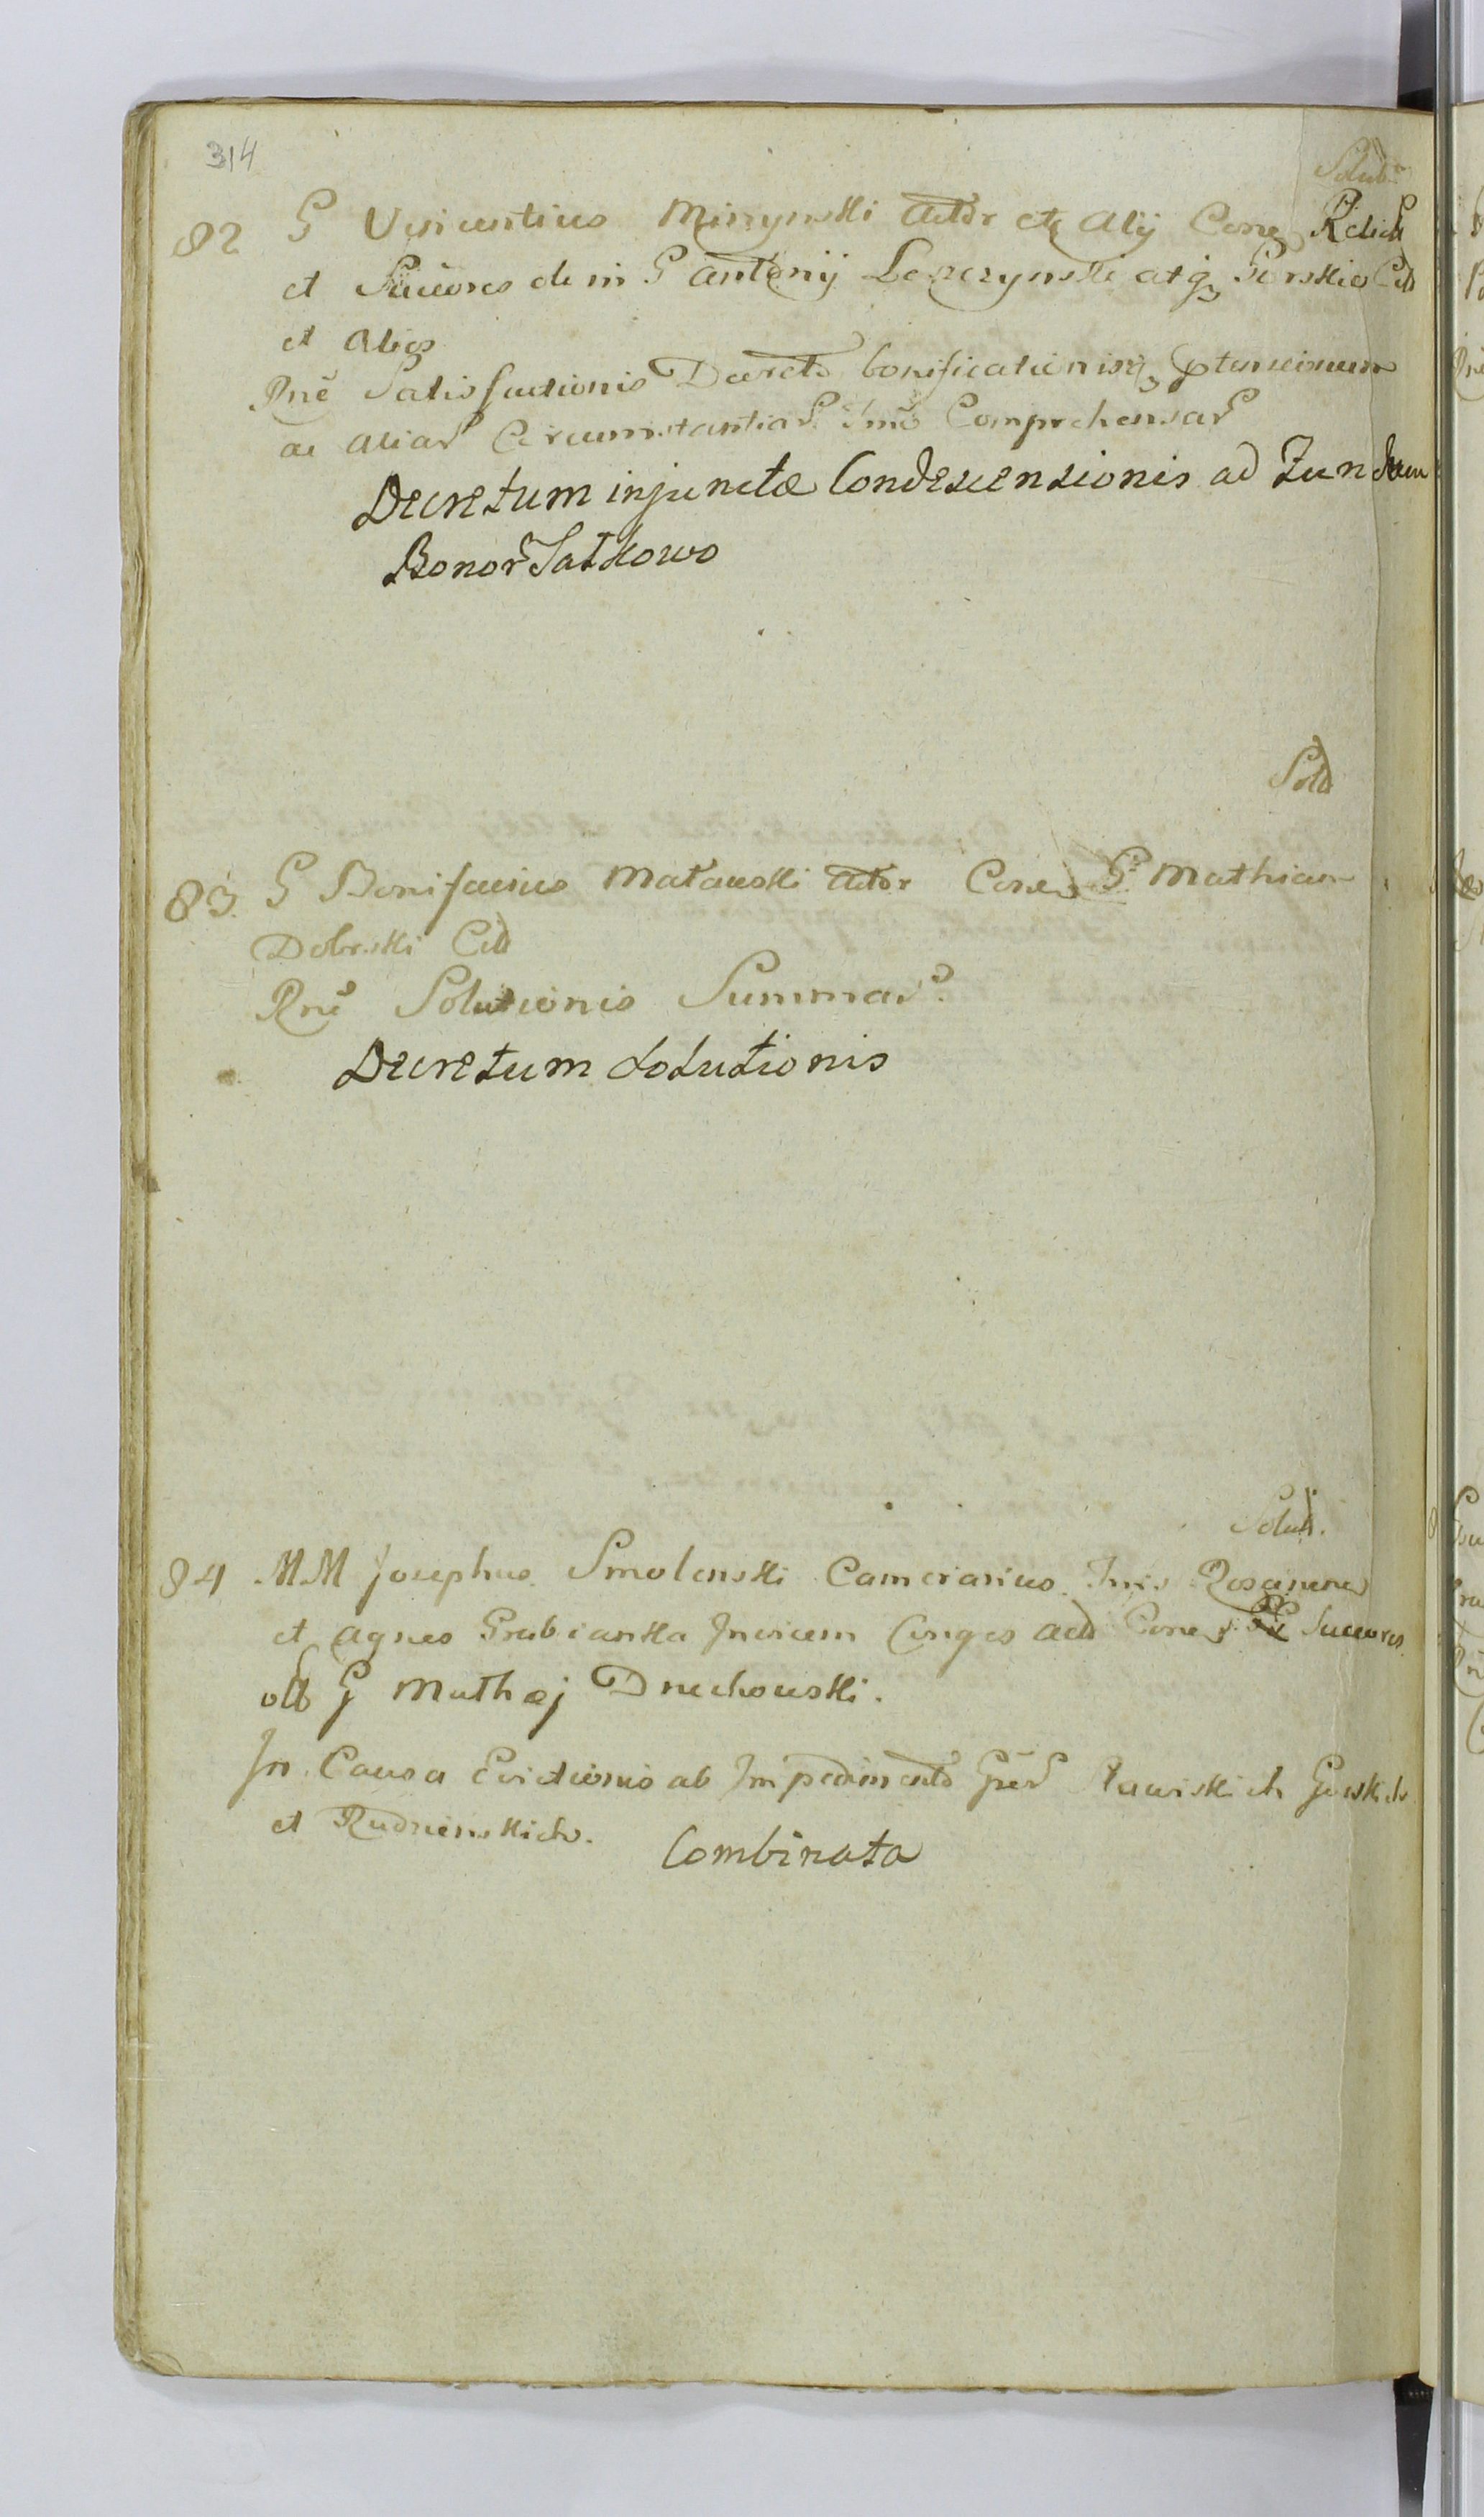 314
Solut
82 G Vincentius Minynski Actor et Alij Cone Relict
et Succores olim G Antonij Leszczynski atq Gorskie Citt
et Alios
Rne Satisfactionis Decreto bonificationisq
ac Aliar Circumstantiar Comprehensar
Decretum injunctæ Condescensionis ad Fundum
Bonor Satkowo
Solt
83. G Bonifacius Matauski Actor Cone G Mathiam
Dobrski Citt
Rne Solutionis Summar
Decretum Solutionis
Solut.
84 MM Josephus Smolenski Camerarius Rosanens
et Agnes Grabianka Invicem Conges Act Cone Succores
olt G Mathæj Druchouski.
In Causa Evictionis ab Impedimento Gner Rawiskich Gorskich
et Rudzienskich. Combinata